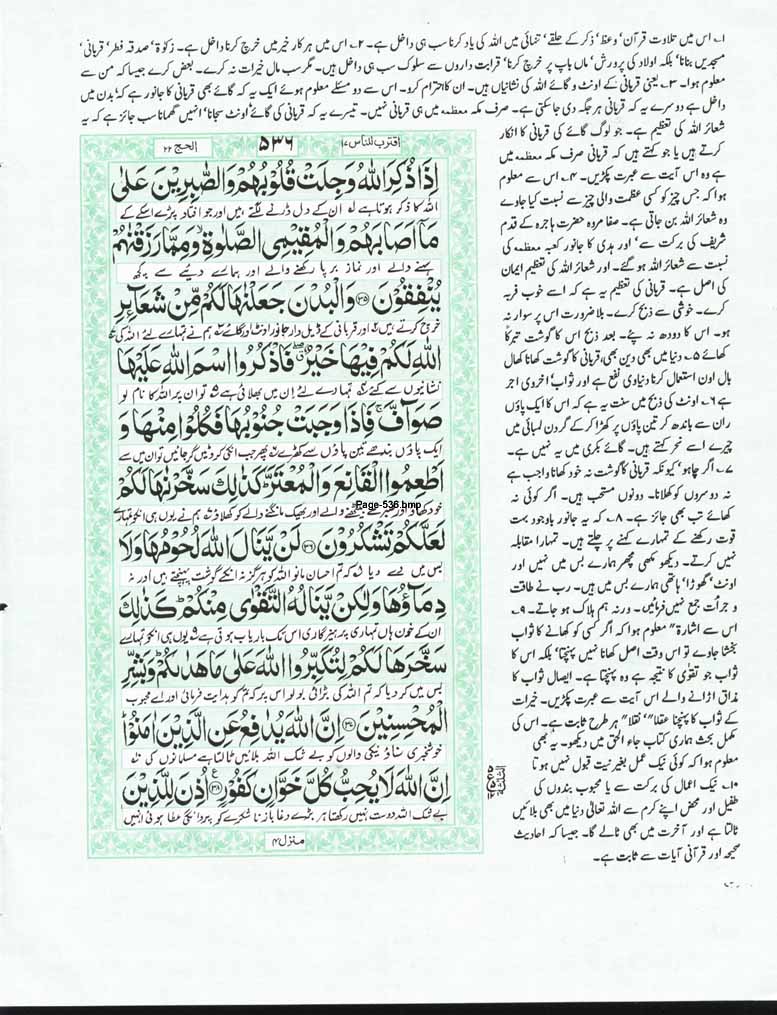 ۱۔ اس میں تلاوت قرآن' وعظ' ذکر کے حلقے' تنہائی میں اللہ کی یاد کرنا سب ہی داخل ہے۔ ۲۔ اس میں ہر کار خیر میں خرچ کرنا داخل ہے۔ زکوٰۃ' صدقہ فطر' قربانی'
مسجدیں بنانا' بلکہ اولاد کی پرورش' ماں باپ پر خرچ کرنا' قرابت داروں سے سلوک سب ہی داخل ہیں۔ مگر سب مال خیرات نہ کرے۔ بعض کرے جیسا کہ من سے
معلوم ہوا۔ ۳۔ یعنی قربانی کے اونٹ و گائے اللہ کی نشانیاں ہیں۔ ان کا احترام کرو۔ اس سے دو مسئلے معلوم ہوئے ایک یہ کہ گائے بھی قربانی کا جانور ہے کہ' بدن میں
داخل ہے دوسرے یہ کہ قربانی ہر جگہ دی جا سکتی ہے۔ صرف مکہ معظمہ میں ہی قربانی نہیں۔ تیسرے یہ کہ قربانی کی گائے' اونٹ سجانا' انہیں گھمانا سب جائز ہے کہ یہ
شعائر اللہ کی تعظیم ہے۔ جو لوگ گائے کی قربانی کا انکار
کرتے ہیں یا جو کہتے ہیں کہ قربانی صرف مکہ معظمہ میں
ہے وہ اس آیت سے عبرت پکڑیں۔ ۴۔ اس سے معلوم
ہوا کہ جس چیز کو کسی عظمت والی چیز سے نسبت کیا جاوے
وہ شعائر اللہ بن جاتی ہے۔ صفا مروہ حضرت ہاجرہ کے قدم
شریف کی برکت سے' اور ہدی کا جانور کعبہ معظمہ کی
نسبت سے شعائر اللہ ہو گئے۔ اور شعائر اللہ کی تعظیم ایمان
کی اصل ہے۔ قربانی کی تعظیم یہ ہے کہ اسے خوب فربہ
کرے۔ خوشی سے ذبح کرے۔ بلا ضرورت اس پر سوار نہ
ہو۔ اس کا دودھ نہ پئے۔ بعد ذبح اس کا گوشت تبرکاً
کھائے ۵۔ دنیا میں بھی دین بھی، قربانی کا گوشت کھانا کھال
بال اون استعمال کرنا دنیاوی نفع ہے اور ثواب' اخروی اجر
ہے ۶۔ اونٹ کی ذبح میں سنت یہ ہے کہ اس کا ایک پاؤں
ران سے باندھ کر تین پاؤں پر کھڑا کر کے گردن لمبائی میں
چیرے اسے نحر کہتے ہیں۔ گائے بکری میں یہ نہیں ہے۔
۷۔ اگر چاہو' کیونکہ قربانی کا گوشت نہ خود کھانا واجب ہے
نہ دوسروں کو کھلانا۔ دونوں مستحب ہیں۔ اگر کوئی نہ
کھائے تب بھی جائز ہے۔ ۸۔ کہ یہ جانور باوجود بہت
قوت رکھنے کے تمہارے کہنے پر چلتے ہیں۔ تمہارا مقابلہ
نہیں کرتے۔ دیکھو مکھی مچھر ہمارے بس میں نہیں اور
اونٹ' گھوڑا' ہاتھی ہمارے بس میں ہیں۔ رب نے طاقت
و جرأت جمع نہیں فرمائیں۔ ورنہ ہم ہلاک ہو جاتے۔ ۹۔
اس سے اشارۃً معلوم ہوا کہ اگر کسی کو کھانے کا ثواب
بخشا جاوے تو اس وقت اصل کھانا نہیں پہنچتا' بلکہ اس کا
ثواب جو تقویٰ کا نتیجہ ہے وہ پہنچتا ہے۔ ایصال ثواب کا
مذاق اڑانے والے اس آیت سے عبرت پکڑیں۔ خیرات
کے ثواب کا پہنچنا عقلاً' نقلاً' ہر طرح ثابت ہے۔ اس کی
مکمل بحث ہماری کتاب جاء الحق میں دیکھو۔ یہ بھی
معلوم ہوا کہ کوئی نیک عمل بغیر نیت قبول نہیں ہوتا
۱۰۔ نیک اعمال کی برکت سے یا محبوب بندوں کی
طفیل اور محض اپنے کرم سے اللہ تعالیٰ دنیا میں بھی بلائیں
ٹالتا ہے اور آخرت میں بھی ٹالے گا۔ جیسا کہ احادیث
صحیحہ اور قرآنی آیات سے ثابت ہے۔
اقترب للناس ۱۷ ۵۳۶ الحج ۲۲
اِذَا ذُكِرَ اللّٰهُ وَجِلَتْ قُلُوْبُهُمْ وَالصّٰبِرِيْنَ عَلٰى
اللہ کا ذکر ہوتا ہے ان کے دل ڈرنے لگتے ہیں اور جو افتاد پڑے اسکے
مَاۤ اَصَابَهُمْ وَالْمُقِيْمِى الصَّلٰوةِ وَمِمَّا رَزَقْنٰهُمْ
سہنے والے اور نماز برپا رکھنے والے اور ہمارے دیئے سے کچھ
يُنْفِقُوْنَ ۳۵ وَالْبُدْنَ جَعَلْنٰهَا لَكُمْ مِّنْ شَعَآئِرِ
خرچ کرتے ہیں اور قربانی کے ڈیل دار جانور اونٹ اور گائے ہم نے تمہارے لئے اللہ کی
اللّٰهِ لَكُمْ فِيْهَا خَيْرٌ فَاذْكُرُوا اسْمَ اللّٰهِ عَلَيْهَا
نشانیوں سے کئے تمہارے لئے ان میں بھلائی ہے تو ان پر اللہ کا نام لو
صَوَآفَّ فَاِذَا وَجَبَتْ جُنُوْبُهَا فَكُلُوْا مِنْهَا وَ
ایک پاؤں بندھے تین پاؤں سے کھڑے پھر جب انکی کروٹیں گر جائیں تو ان میں سے
اَطْعِمُوا الْقَانِعَ وَالْمُعْتَرَّ كَذٰلِكَ سَخَّرْنٰهَا لَكُمْ
خود کھاؤ اور صبر سے بیٹھنے والے اور بھیک مانگنے والے کو کھلاؤ ہم نے یوں ہی انکو تمہارے
Page-536.bmp
لَعَلَّكُمْ تَشْكُرُوْنَ ۳۶ لَنْ يَّنَالَ اللّٰهَ لُحُوْمُهَا وَلَا
بس میں دے دیا کہ تم احسان مانو اللہ کو ہرگز نہ انکے گوشت پہنچتے ہیں اور نہ
دِمَآؤُهَا وَلٰكِنْ يَّنَالُهُ التَّقْوٰى مِنْكُمْ كَذٰلِكَ
ان کے خون ہاں تمہاری پرہیزگاری اس تک باریاب ہوتی ہے یوں ہی انکو تمہارے
سَخَّرَهَا لَكُمْ لِتُكَبِّرُوا اللّٰهَ عَلٰى مَا هَدٰىكُمْ وَبَشِّرِ
بس میں کر دیا کہ تم اللہ کی بڑائی بولو اس پر کہ تم کو ہدایت فرمائی اور اے محبوب
الْمُحْسِنِيْنَ ۳۷ اِنَّ اللّٰهَ يُدٰفِعُ عَنِ الَّذِيْنَ اٰمَنُوْا
خوشخبری سناؤ نیکی والوں کو بے شک اللہ بلائیں ٹالتا ہے مسلمانوں کی
اِنَّ اللّٰهَ لَا يُحِبُّ كُلَّ خَوَّانٍ كَفُوْرٍ ۳۸ اُذِنَ لِلَّذِيْنَ
بے شک اللہ دوست نہیں رکھتا ہر بڑے دغا باز ناشکرے کو پروانگی عطا ہوئی انہیں
منزل ۴